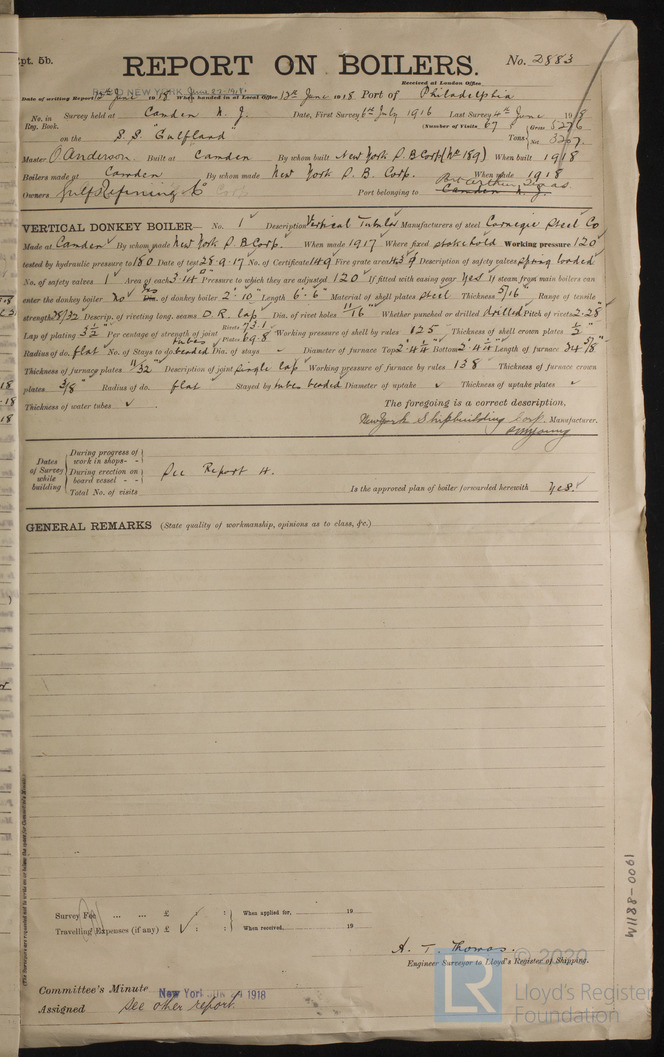 Rpt. 5b.
REPORT ON BOILERS.
No. 2883
Received at London Office
Date of writing Report 12th June 1918 When handed in at Local Office 12th June 1918 Port of Philadelphia
No. in Reg. Book. Survey held at Camden N. J. Date, First Survey 1st July 1916 Last Survey 4th June 1918
(Number of Visits 67)
on the S.S. "Gulfland" Tons Gross 5276 Net 3207
Master O Anderson Built at Camden By whom built New York S. B. Corp (No 189) When built 1918
Boilers made at Camden By whom made New York S. B. Corp. When made 1918
Owners Gulf Refining Co Port belonging to Port Arthur Texas
Camden N. J.
VERTICAL DONKEY BOILER— No. 1 Description Vertical Tubular Manufacturers of steel Carnegie Steel Co
Made at Camden By whom made New York S. B. Corp. When made 1917 Where fixed stokehold Working pressure 120
tested by hydraulic pressure to 180 Date of test 28.9.17 No. of Certificate 149 Fire grate area Description of safety valves spring loaded
No. of safety valves 1 Area of each 3.14 Pressure to which they are adjusted 120 If fitted with easing gear yes If steam from main boilers can
enter the donkey boiler no Dia. of donkey boiler 2'10" Length 6'6" Material of shell plates steel Thickness 5/16" Range of tensile
strength 28/32 Descrip. of riveting long. seams D. R. lap Dia. of rivet holes 11/16" Whether punched or drilled drilled Pitch of rivets 2.28"
Lap of plating 3 1/2" Per centage of strength of joint Rivets 73.1 Plates 69.8 Working pressure of shell by rules 125 Thickness of shell crown plates 1/2"
Radius of do. flat No. of Stays to do. tubes beaded Dia. of stays - Diameter of furnace Top 2'4 1/4" Bottom 2'4 1/4" Length of furnace 34 5/8"
Thickness of furnace plates 11/32" Description of joint single lap Working pressure of furnace by rules 138 Thickness of furnace crown
plates 3/8" Radius of do. flat Stayed by tubes beaded Diameter of uptake ✓ Thickness of uptake plates ✓
Thickness of water tubes ✓
The foregoing is a correct description,
New York Shipbuilding Corp. Manufacturer.
Dates of Survey while building
During progress of work in shops - -
During erection on board vessel - -
Total No. of visits
See Report 4.
Is the approved plan of boiler forwarded herewith Yes.
GENERAL REMARKS (State quality of workmanship, opinions as to class, &c.)
Survey Fee ... ... £ : : When applied for, 19
Travelling Expenses (if any) £ : : When received, 19
A. T. Thomas.
Engineer Surveyor to Lloyd's Register of Shipping.
Committee's Minute New York JUN 1918
Assigned See other report.
W1188-0061
© 2020
LR
Lloyd's Register
Foundation